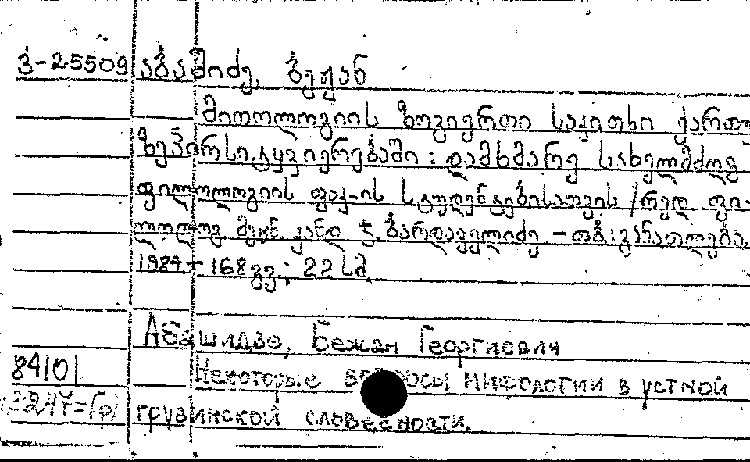 3-25509 აბაშიძე, ბეჟან
მითოლოგიის ზოგიერთი საკითხი ქართულ
ზეპირსიტყვიერებაში: დამხმარე სახელმძღვ.
ფილოლოგიის ფაკ-ის სტუდენტებისათვის /რედ. ფი-
ლოლოგ. მეცნ. კანდ. ჯ. ბარდაველიძე. - თბ.: განათლება,
1984. - 168 გვ.; 22 სმ.
Абашидзе, Бежан Георгиевич
84101 Некоторые вопросы мифологии в устной
грузинской словесности.